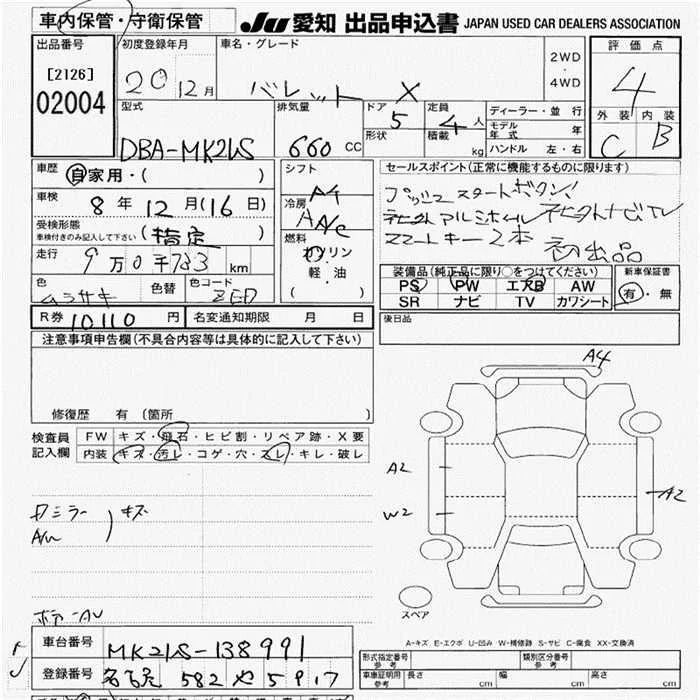 車内保管・守衛保管
JU 愛知 出品申込書 JAPAN USED CAR DEALERS ASSOCIATION
出品番号
[2126]
02004
初度登録年月
20 12月
車名・グレード
バレット X
2WD
・
4WD
評価点
4
外装 内装
C B
型式
DBA-MK21S
排気量
660 CC
ドア
5
形状
定員
4人
積載 kg
ディーラー・並行
モデル年式 年
ハンドル 左・右
車歴
自家用・( )
車検
8年 12月(16日)
受検形態
車検付きのみ記入して下さい
(指定)
走行
9万0千733 km
色
ムラサキ
色替
色コード
ZED
シフト
A4
冷房
A/C
燃料
ガソリン
軽・油
( )
セールスポイント(正常に機能するものに限ります)
プッシュスタートボタン!
社外アルミホイール 社外ナビTV
スマートキー2本 初出品
装備品(純正品に限り○をつけてください)
PS PW エアB AW
SR ナビ TV カワシート
新車保証書
有・無
R券 10110 円
名変通知期限 月 日
後日品
注意事項申告欄(不具合内容等は具体的に記入して下さい)
修復歴 有 (箇所 )
検査員
記入欄
FW キズ・飛石・ヒビ割・リペア跡・X要
内装 キズ・汚レ・コゲ・穴・スレ・キレ・破レ
A4
A2
W2
A2
ミラー
A/W
キズ
スペア
A-キズ E-エクボ U-凹み W-補修跡 S-サビ C-腐食 XX-交換済
車台番号
MK21S-138991
登録番号
名古屋 582 や 5917
形式指定番号
参考
類別区分番号
参考
車庫証明用
参考
長さ cm
幅 cm
高さ cm